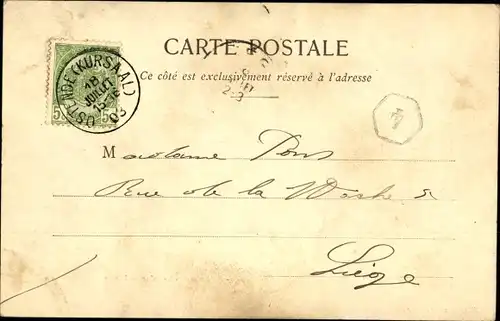 CARTE POSTALE
Ce côté est exclusivement réservé à l'adresse
OSTENDE (KURSAAL)
18
JUILLET
03
5
5
4
Madame Pons
Rue de la
Liége